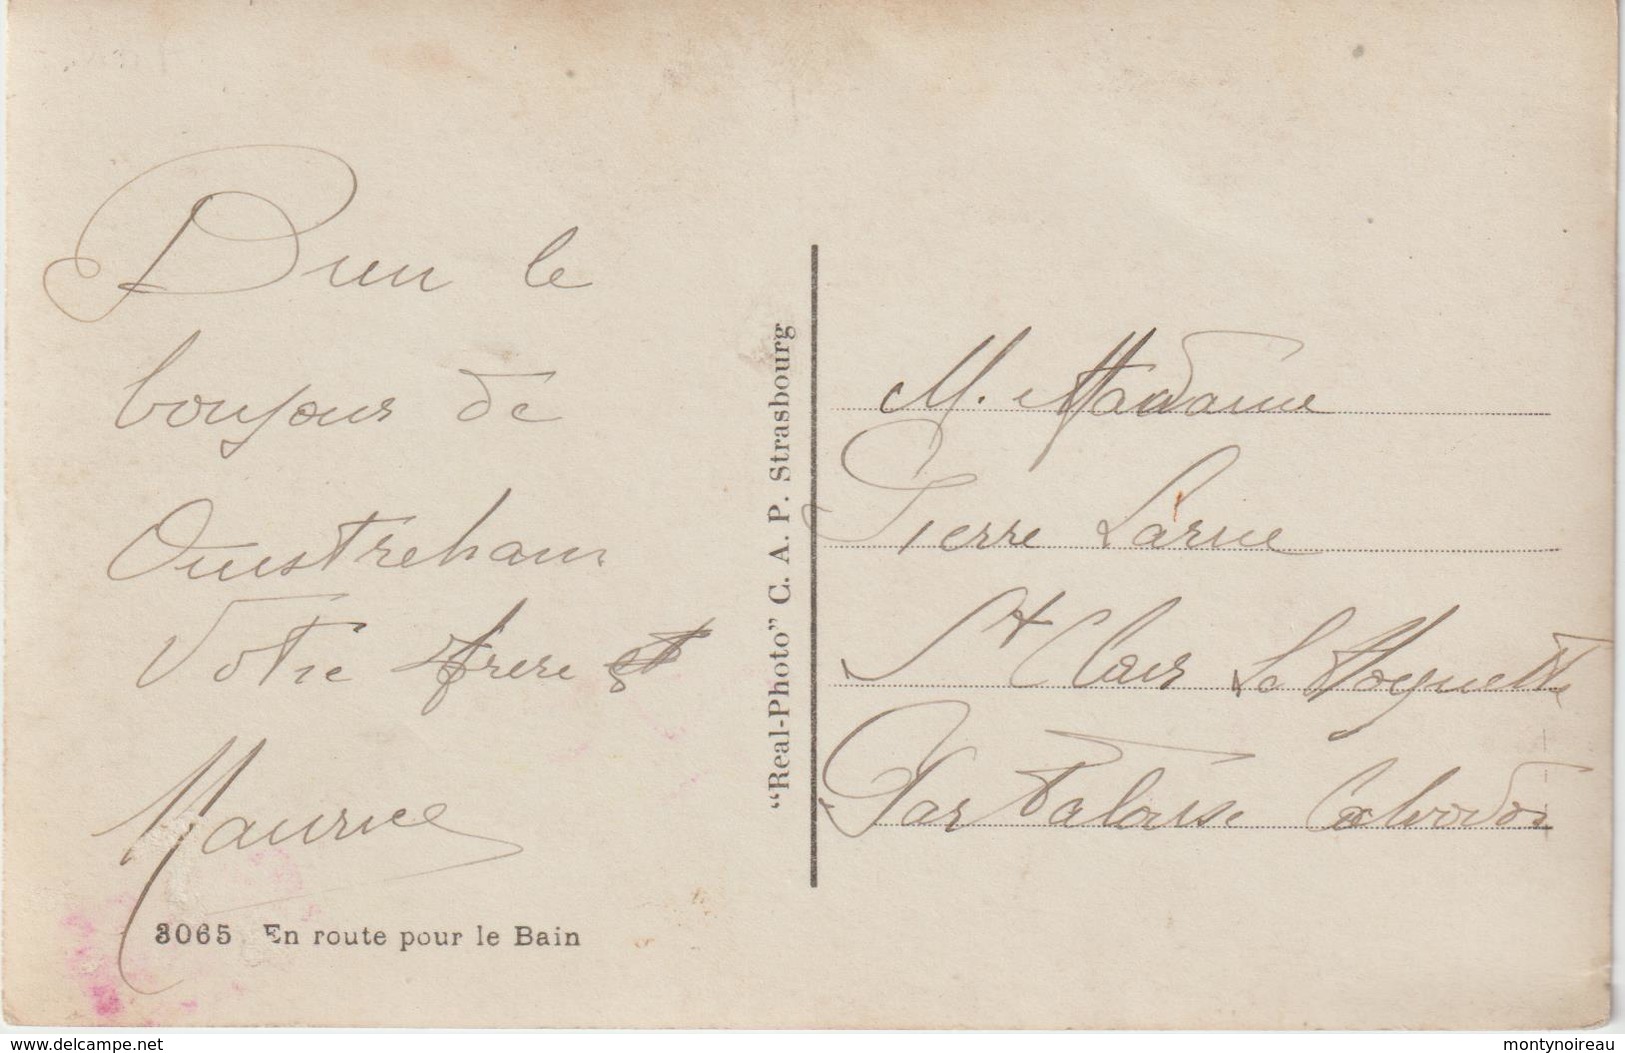 Bien le
bonjour de
Ouistreham
Votre frere et
Maurice
3065 En route pour le Bain
"Real-Photo" C. A. P. Strasbourg
M. Madame
Pierre Larue
St Clair La Hoguette
Par Falaise Calvados
www.delcampe.net
montynoireau